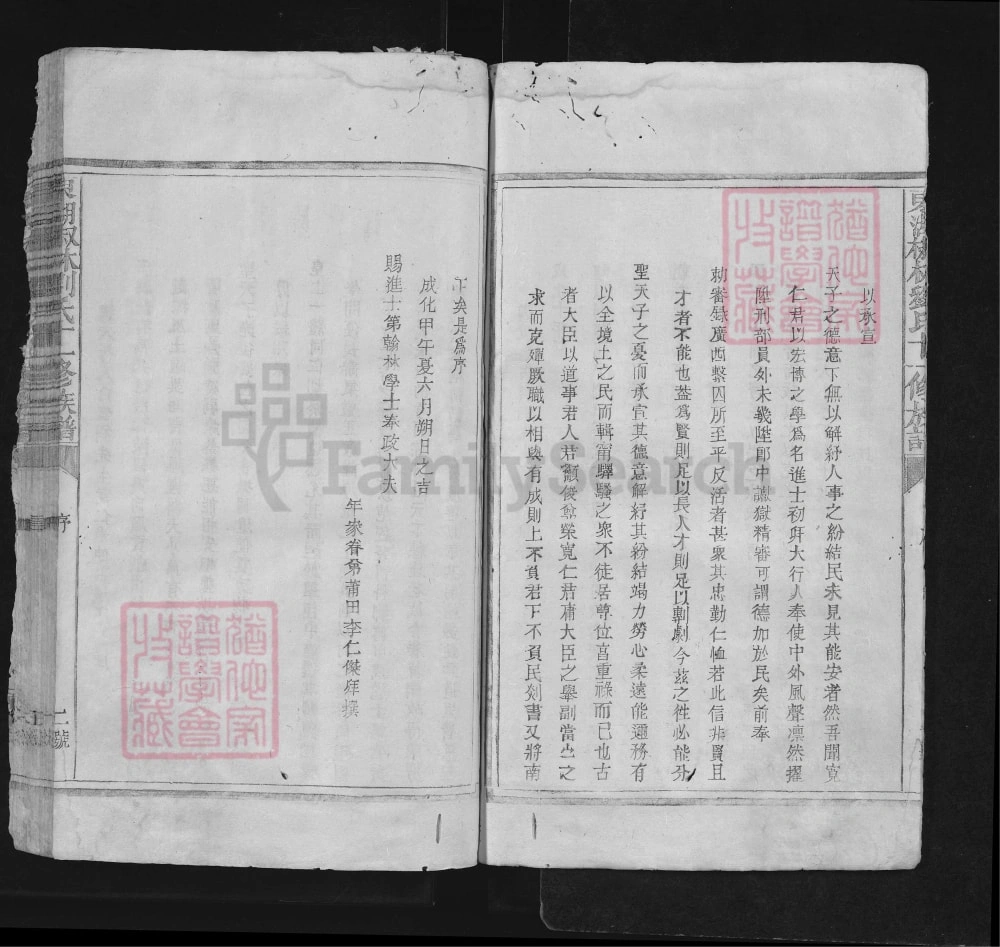 以承宣
天子之德意下無以解紓人事之紛結民未見其能安者然吾聞寬
仁君以宏博之學爲名進士初拜大行人奉使中外風聲凛然擢
陞刑部員外未幾陞郎中讞獄精審可謂德加於民矣前奉
勅審錄廣西繫囚所至平反活者甚衆其忠勤仁恤若此信非賢且
才者不能也蓋爲賢則足以長人才則足以剸劇今兹之徃必能分
聖天子之憂而承宣其德意解紓其紛結竭力勞心柔遠能邇務有
以全境土之民而輯甯驛騷之衆不徒居尊位富重祿而已也古
者大臣以道事君人君籲俊僉榮寬仁君膺大臣之舉副當世之
求而克殫厥職以相與有成則上不負君下不負民剡書又將南
下矣是爲序
成化甲午夏六月朔日之吉
賜進士第翰林學士奉政大夫
年家眷弟莆田李仁傑拜撰
序
二號
氏十二修族譜
猶他家譜學會收藏
猶他家譜學會收藏
FamilySearch